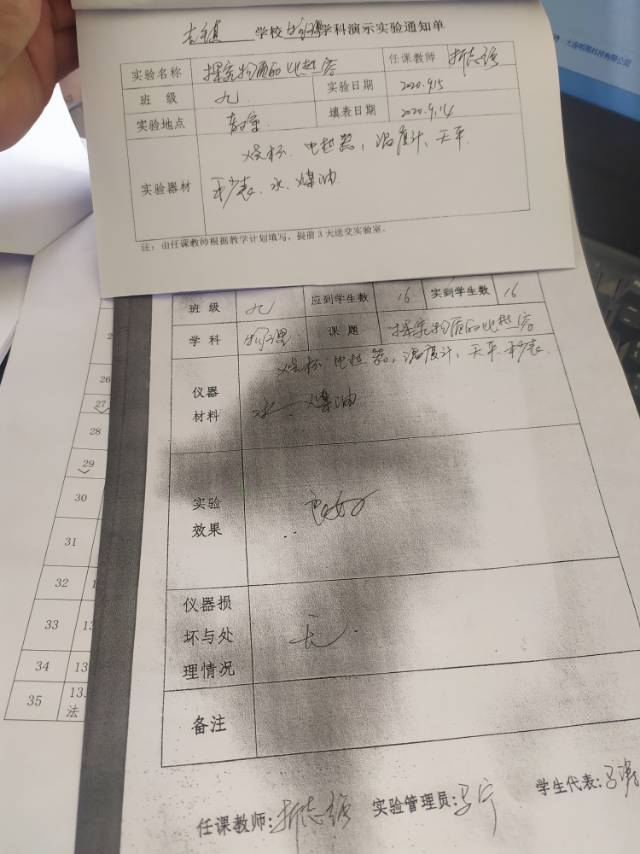 学校物理学科演示实验通知单
实验名称 探究物质的比热容 任课教师
班 级 九 实验日期 2020.9.15
实验地点 教室 填表日期 2020.9.14
实验器材 烧杯、电热器，温度计，天平
秒表、水、煤油
注：由任课教师根据教学计划填写，提前3天送交实验室。
班级 九 应到学生数 16 实到学生数 16
学科 物理 课题 探究物质的比热容
仪器材料 烧杯、电热器，温度计，天平、秒表、
水、煤油
实验效果 良好
仪器损坏与处理情况 无
备注
任课教师： 实验管理员： 学生代表：
26
27
28
29
30
31
32
33 13
34 13
35 13.
法